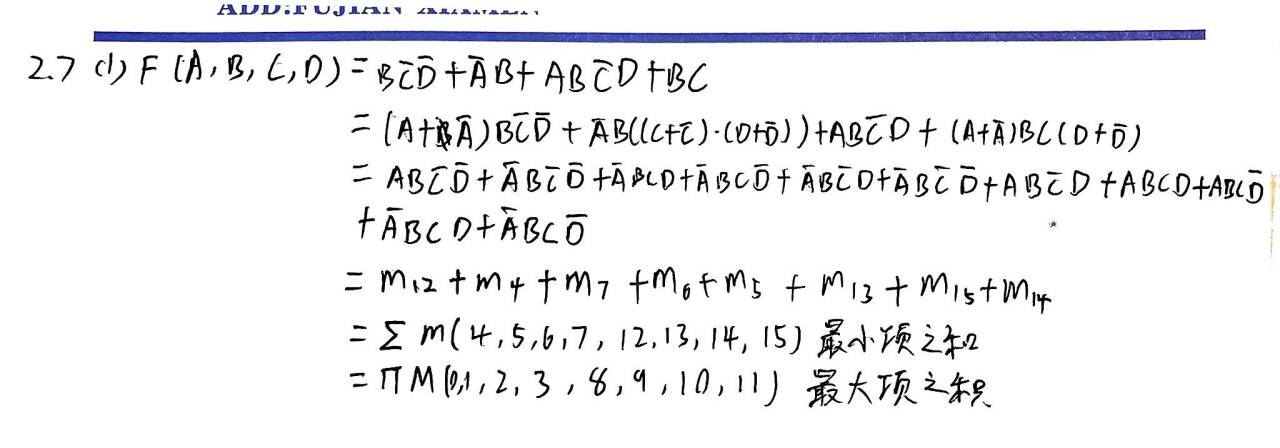 2.7 (1) F(A,B,C,D) = BC̅D̅ + A̅B + ABC̅D + BC
= (A+A̅)BC̅D̅ + A̅B((C+C̅)·(D+D̅)) + ABC̅D + (A+A̅)BC(D+D̅)
= ABC̅D̅ + A̅BC̅D̅ + A̅BCD + A̅BCD̅ + A̅BC̅D + A̅BC̅D̅ + ABC̅D + ABCD + ABCD̅
+ A̅BCD + A̅BCD̅
= m12 + m4 + m7 + m6 + m5 + m13 + m15 + m14
= Σ m(4,5,6,7,12,13,14,15) 最小项之和
= Π M(0,1,2,3,8,9,10,11) 最大项之积